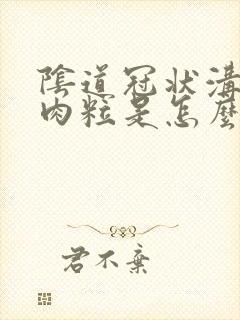 陰道冠狀溝
肉粒是怎麼
君不棄